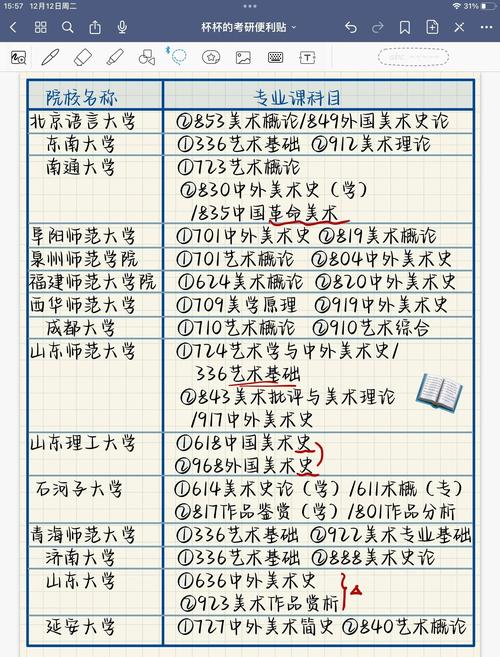 15:57 12月12日周二 31%
杯杯的考研便利贴
院校名称 专业课科目
北京语言大学 ②853美术概论/849外国美术史论
东南大学 ①336艺术基础 ②912美术理论
南通大学 ①723艺术概论
②830中外美术史(学)
/835中国革命美术
阜阳师范大学 ①701中外美术史 ②819美术概论
泉州师范学院 ①701艺术概论 ②804中外美术史
福建师范大学院 ①624美术概论 ②820中外美术史
西华师范大学 ①709美学原理 ②919中外美术史
成都大学 ①710艺术概论 ②910艺术综合
山东师范大学 ①724艺术学与中外美术史/
336艺术基础
②843美术批评与美术理论
/917中外美术史
山东理工大学 ①618中国美术史
②968外国美术史
石河子大学 ①614美术史论(学)/611术概(专)
②817作品鉴赏(学)/801作品分析
青海师范大学 ①336艺术基础 ②922美术专业基础
济南大学 ①336艺术基础 ②888美术史论
山东大学 ①636中外美术史
②923美术作品赏析
延安大学 ①727中外美术简史 ②840艺术概论